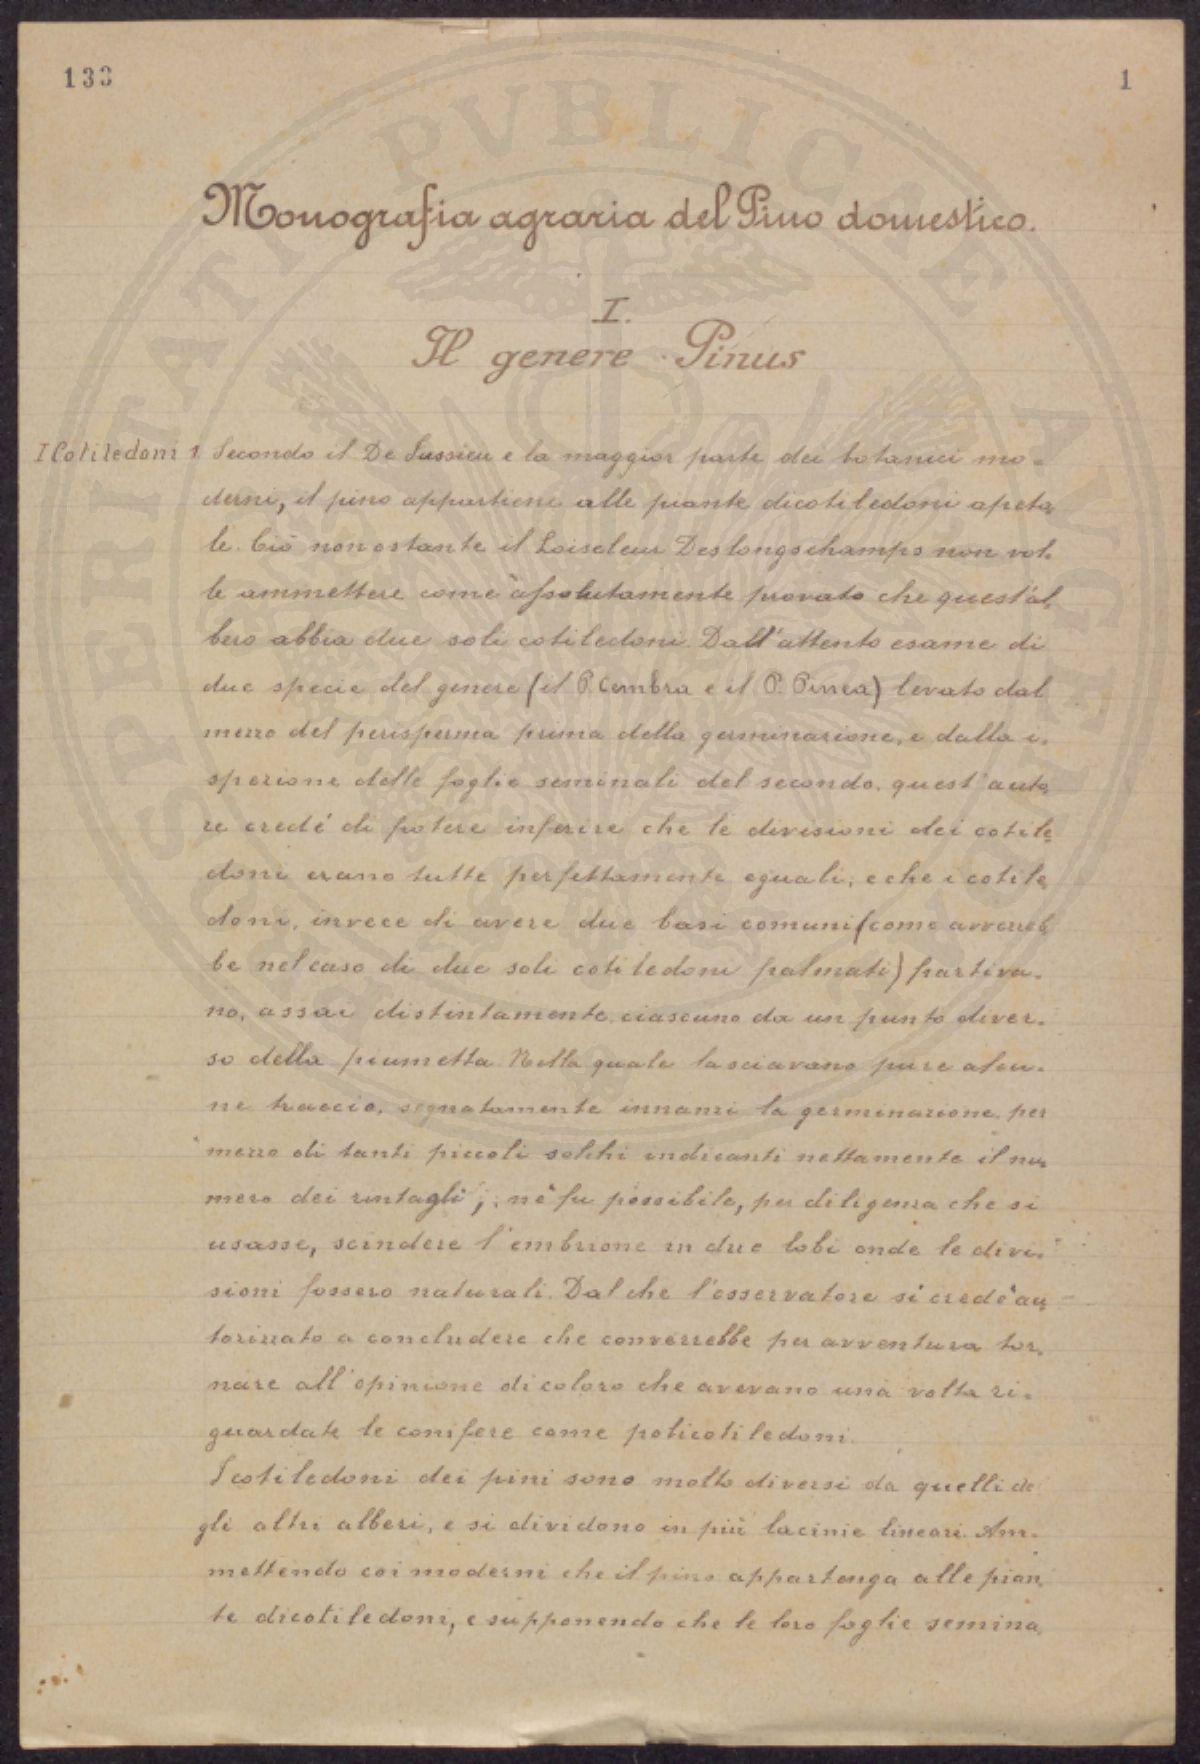 133
1
Monografia agraria del Pino domestico.
I.
Il genere Pinus
I Cotiledoni 1. Secondo il De Jussieu e la maggior parte dei botanici mo-
derni, il pino appartiene alle piante dicotiledoni apeta-
le. Ciò non ostante il Loiseleur Deslongschamps non vol-
le ammettere come assolutamente provato che quest'al-
bero abbia due soli cotiledoni. Dall'attento esame di
due specie del genere (il P. Cembra e il P. Pinea) levato dal
mezzo del perisperma prima della germinazione, e dalla i-
spezione delle foglie seminali del secondo, quest'auto-
re credé di potere inferire che le divisioni dei cotile-
doni erano tutte perfettamente eguali, e che i cotile-
doni, invece di avere due basi comuni (come avverreb-
be nel caso di due soli cotiledoni palmati) partiva-
no, assai distintamente, ciascuno da un punto diver-
so della piumetta. Nella quale lasciavano pure alcu-
ne traccie, segnatamente innanzi la germinazione, per
mezzo di tanti piccoli solchi indicanti nettamente il nu-
mero dei rintagli; né fu possibile, per diligenza che si
usasse, scindere l'embrione in due lobi onde le divi-
sioni fossero naturali. Dal che l'osservatore si credé au-
torizzato a concludere che converrebbe per avventura tor-
nare all'opinione di coloro che avevano una volta ri-
guardate le conifere come policotiledoni.
I cotiledoni dei pini sono molto diversi da quelli de-
gli altri alberi, e si dividono in più lacinie lineari. Am-
mettendo coi moderni che il pino appartenga alle pian-
te dicotiledoni, e supponendo che le loro foglie semina-
PVBLICE